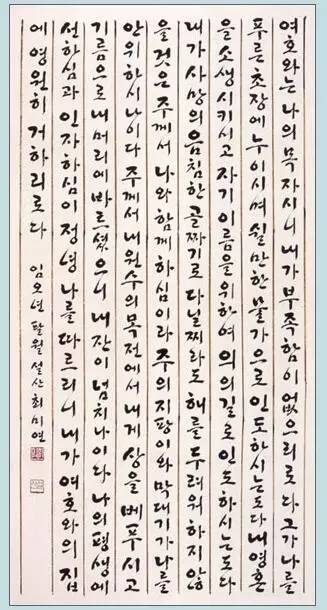 여호와는 나의 목자시니 내가 부족함이 없으리로다 그가 나를
푸른 초장에 누이시며 쉴만한 물가으로 인도하시는도다 내 영혼
을 소생시키시고 자기 이름을 위하여 의의 길로 인도하시는도다
내가 사망의 음침한 골짜기로 다닐찌라도 해를 두려워하지 않
을 것은 주께서 나와 함께 하심이라 주의 지팡이와 막대기가 나를
안위하시나이다 주께서 내 원수의 목전에서 내게 상을 베푸시고
기름으로 내 머리에 바르셨으니 내 잔이 넘치나이다 나의 평생에
선하심과 인자하심이 정녕 나를 따르리니 내가 여호와의 집
에 영원히 거하리로다
임오년 팔월 설산 최미연